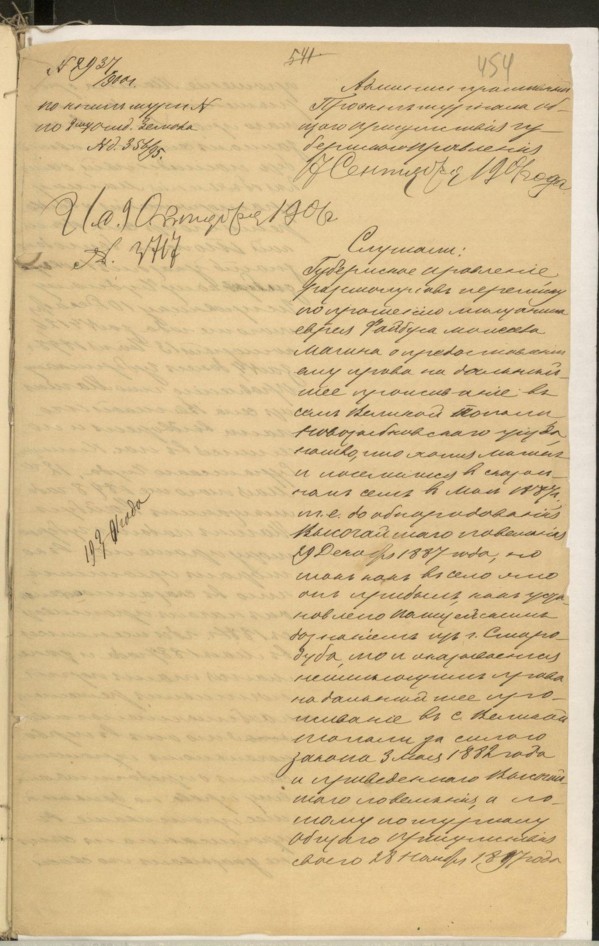 541
454
№ 2937
1900 г.
по
по отд.
№ д. 356/95.
Проэкт журнала об-
щаго присутствия гу-
бернскаго правления
17 Сентября 190 года
9 Октября 190
№. 3717
Слушали:
Губернское правление
рассмотрев переписку
по прошению мещанина
еврея Файбуса Мовшева
Магина о предоставлении
ему права на дальней-
шее проживание в
селе Великой Топали
Новозыбковскаго уезда,
нашло, что хотя Магин
и поселился в сказан-
ном селе в Мае 1887 г.
т.е. до обнародования
Высочайшаго повеления
29 Декабря 1887 года, но
так как в село это
он прибыл, как уста-
новлено полицейским
дознанием из г. Старо-
дуба, то и оказывается
неимеющим права
на дальнейшее про-
живание в с. Великой
Топали за силою
закона 3 мая 1882 года
и приведеннаго Высочай-
шаго повеления, а по-
тому по журналу
общаго присутствия
своего 28 Ноября 1897 года
190 года